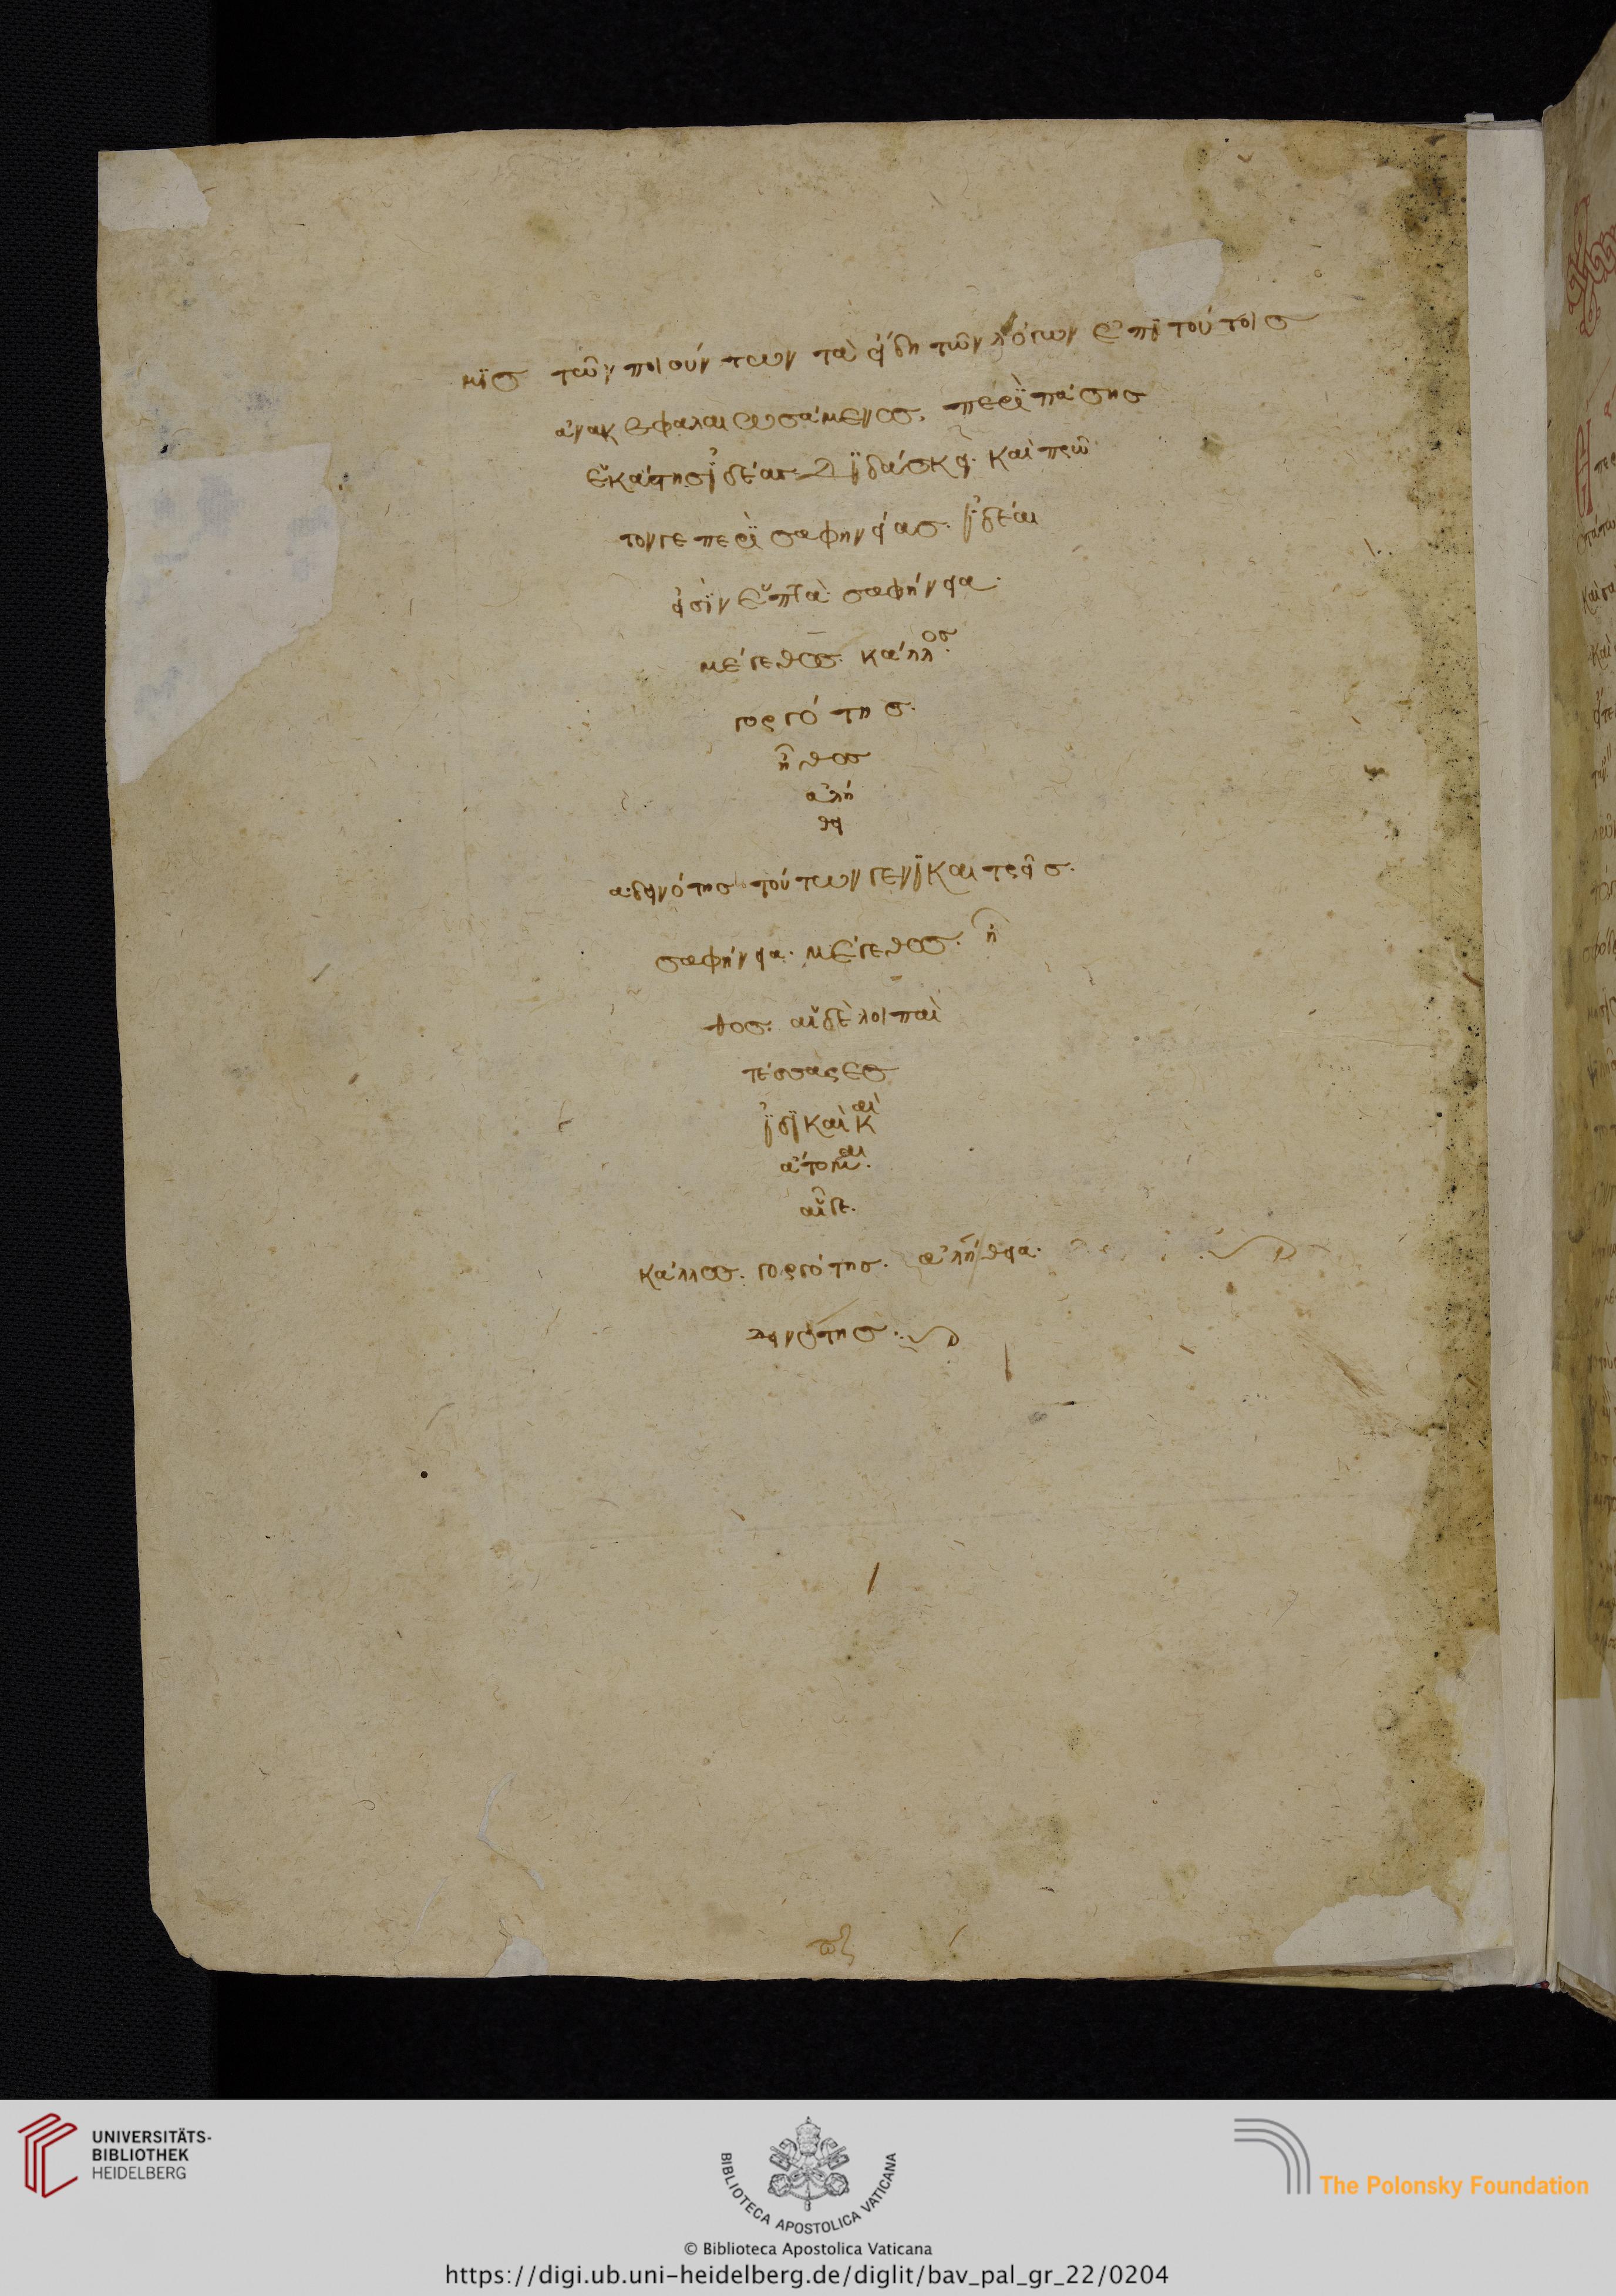 μϊσ τῶν ποιούντων τὰ εἴδη τῶν λόγων ἐπϊ τούτοισ
ἀνακεφαλαιωσάμενοσ. περϊ πάσησ
ἑκάστησ ϊδέασ διδάσκει. καὶ πρῶ
τον γε περϊ σαφηνείασ. ϊδέαι
εἰσϊν ἑπτὰ. σαφήνεια.
μέγεθοσ. κάλλοσ.
γοργότησ.
ἦθοσ
ἀλή
θει
α. δεινότησ τούτων γενϊκαι τρεῖσ.
σαφήνεια. μέγεθοσ. ἦ
θοσ. αἱ δὲ λοιπαὶ
τέσσαρεσ
ϊδϊκαὶ καὶ
ἄτομαι.
αἷδε.
κάλλοσ. γοργότησ. ἀλήθεια.
δεινότησ.
UNIVERSITÄTS-
BIBLIOTHEK
HEIDELBERG
BIBLIOTECA APOSTOLICA VATICANA
The Polonsky Foundation
© Biblioteca Apostolica Vaticana
https://digi.ub.uni-heidelberg.de/diglit/bav_pal_gr_22/0204